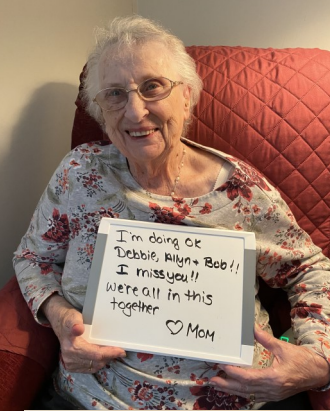 I'm doing OK
Debbie, Allyn + Bob!!
I miss you!!
we're all in this
together
♡ MOM